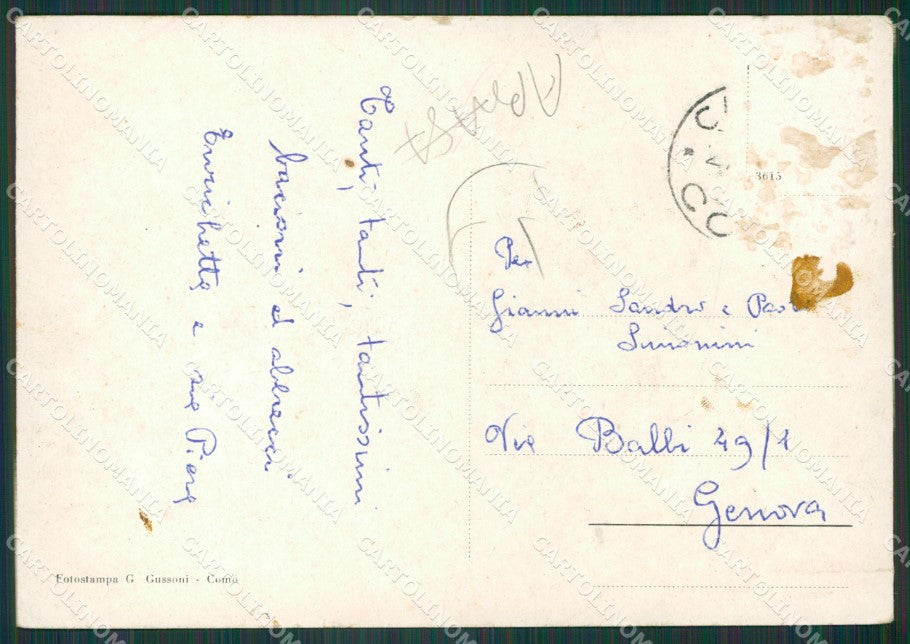 Tanti, tanti, tantissimi
bacioni ed abbracci
Enrichetta e zia Piera
3615
Per
Gianni Sandro e
Simonini
Via Balbi 49/1
Genova
Fotostampa G. Gussoni - Como
CARTOLINOMANIA